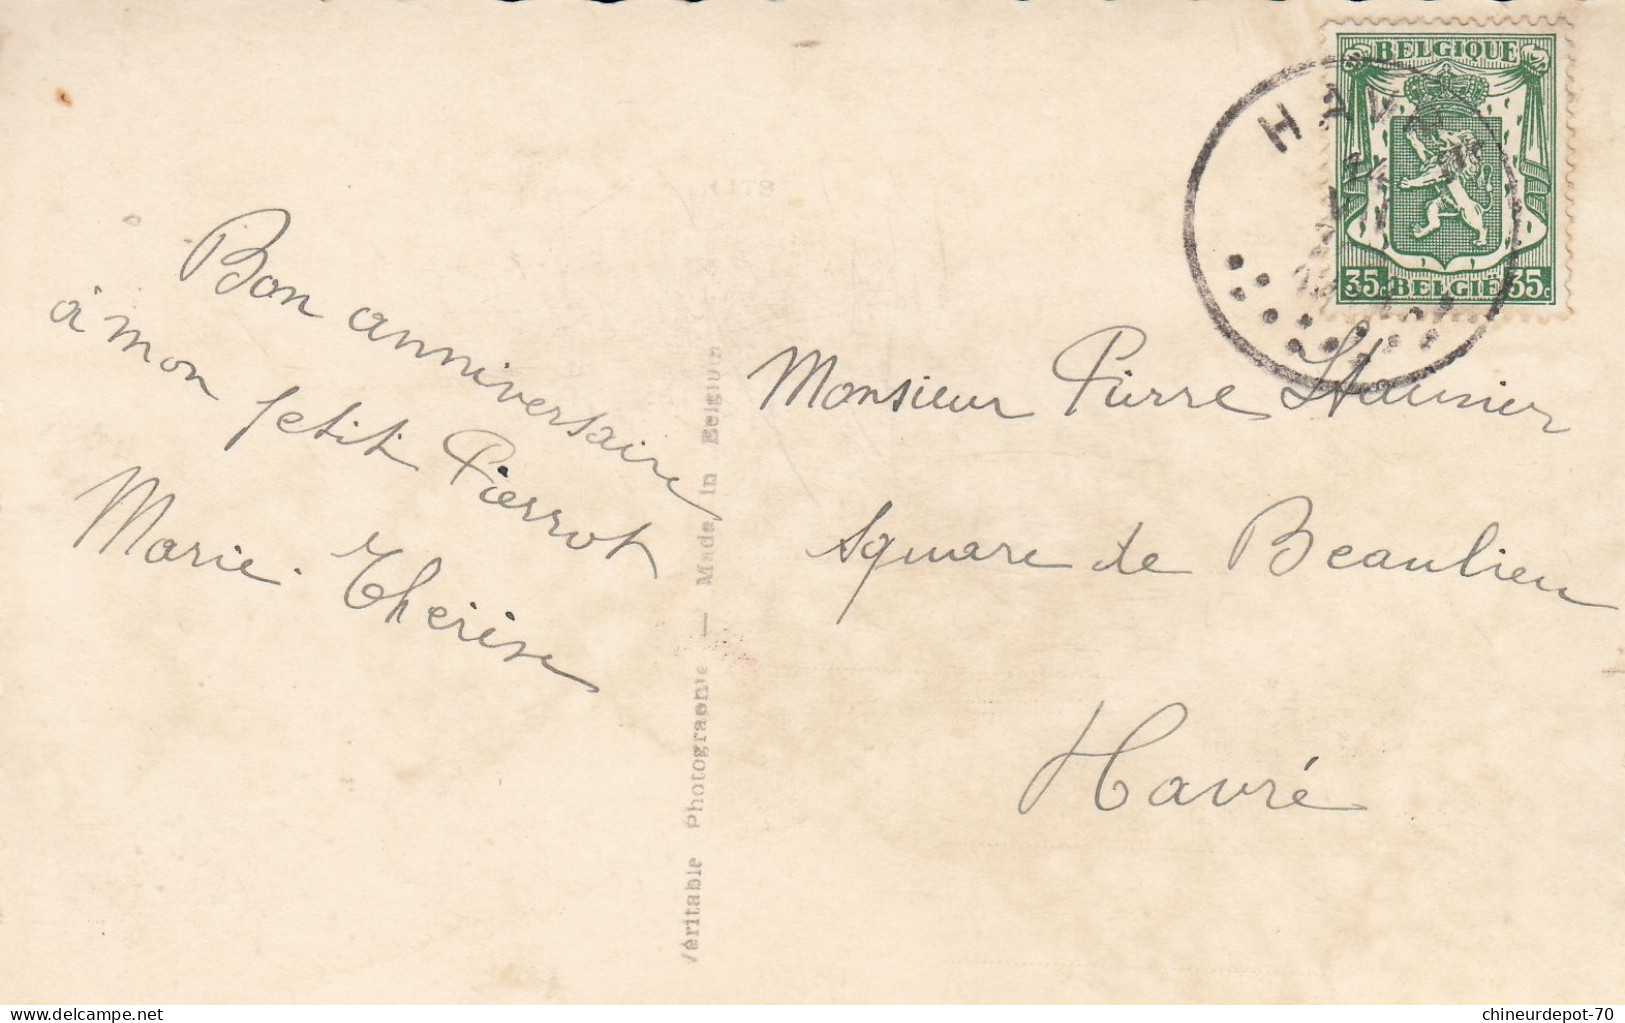 BELGIQUE
35c BELGIË 35c
Bon anniversaire
à mon petit Pierrot
Marie-Thérèse
Véritable Photographie — Made in Belgium
Monsieur Pierre
Square de Beaulieu
Havré
chineurdepot-70
delcampe.net